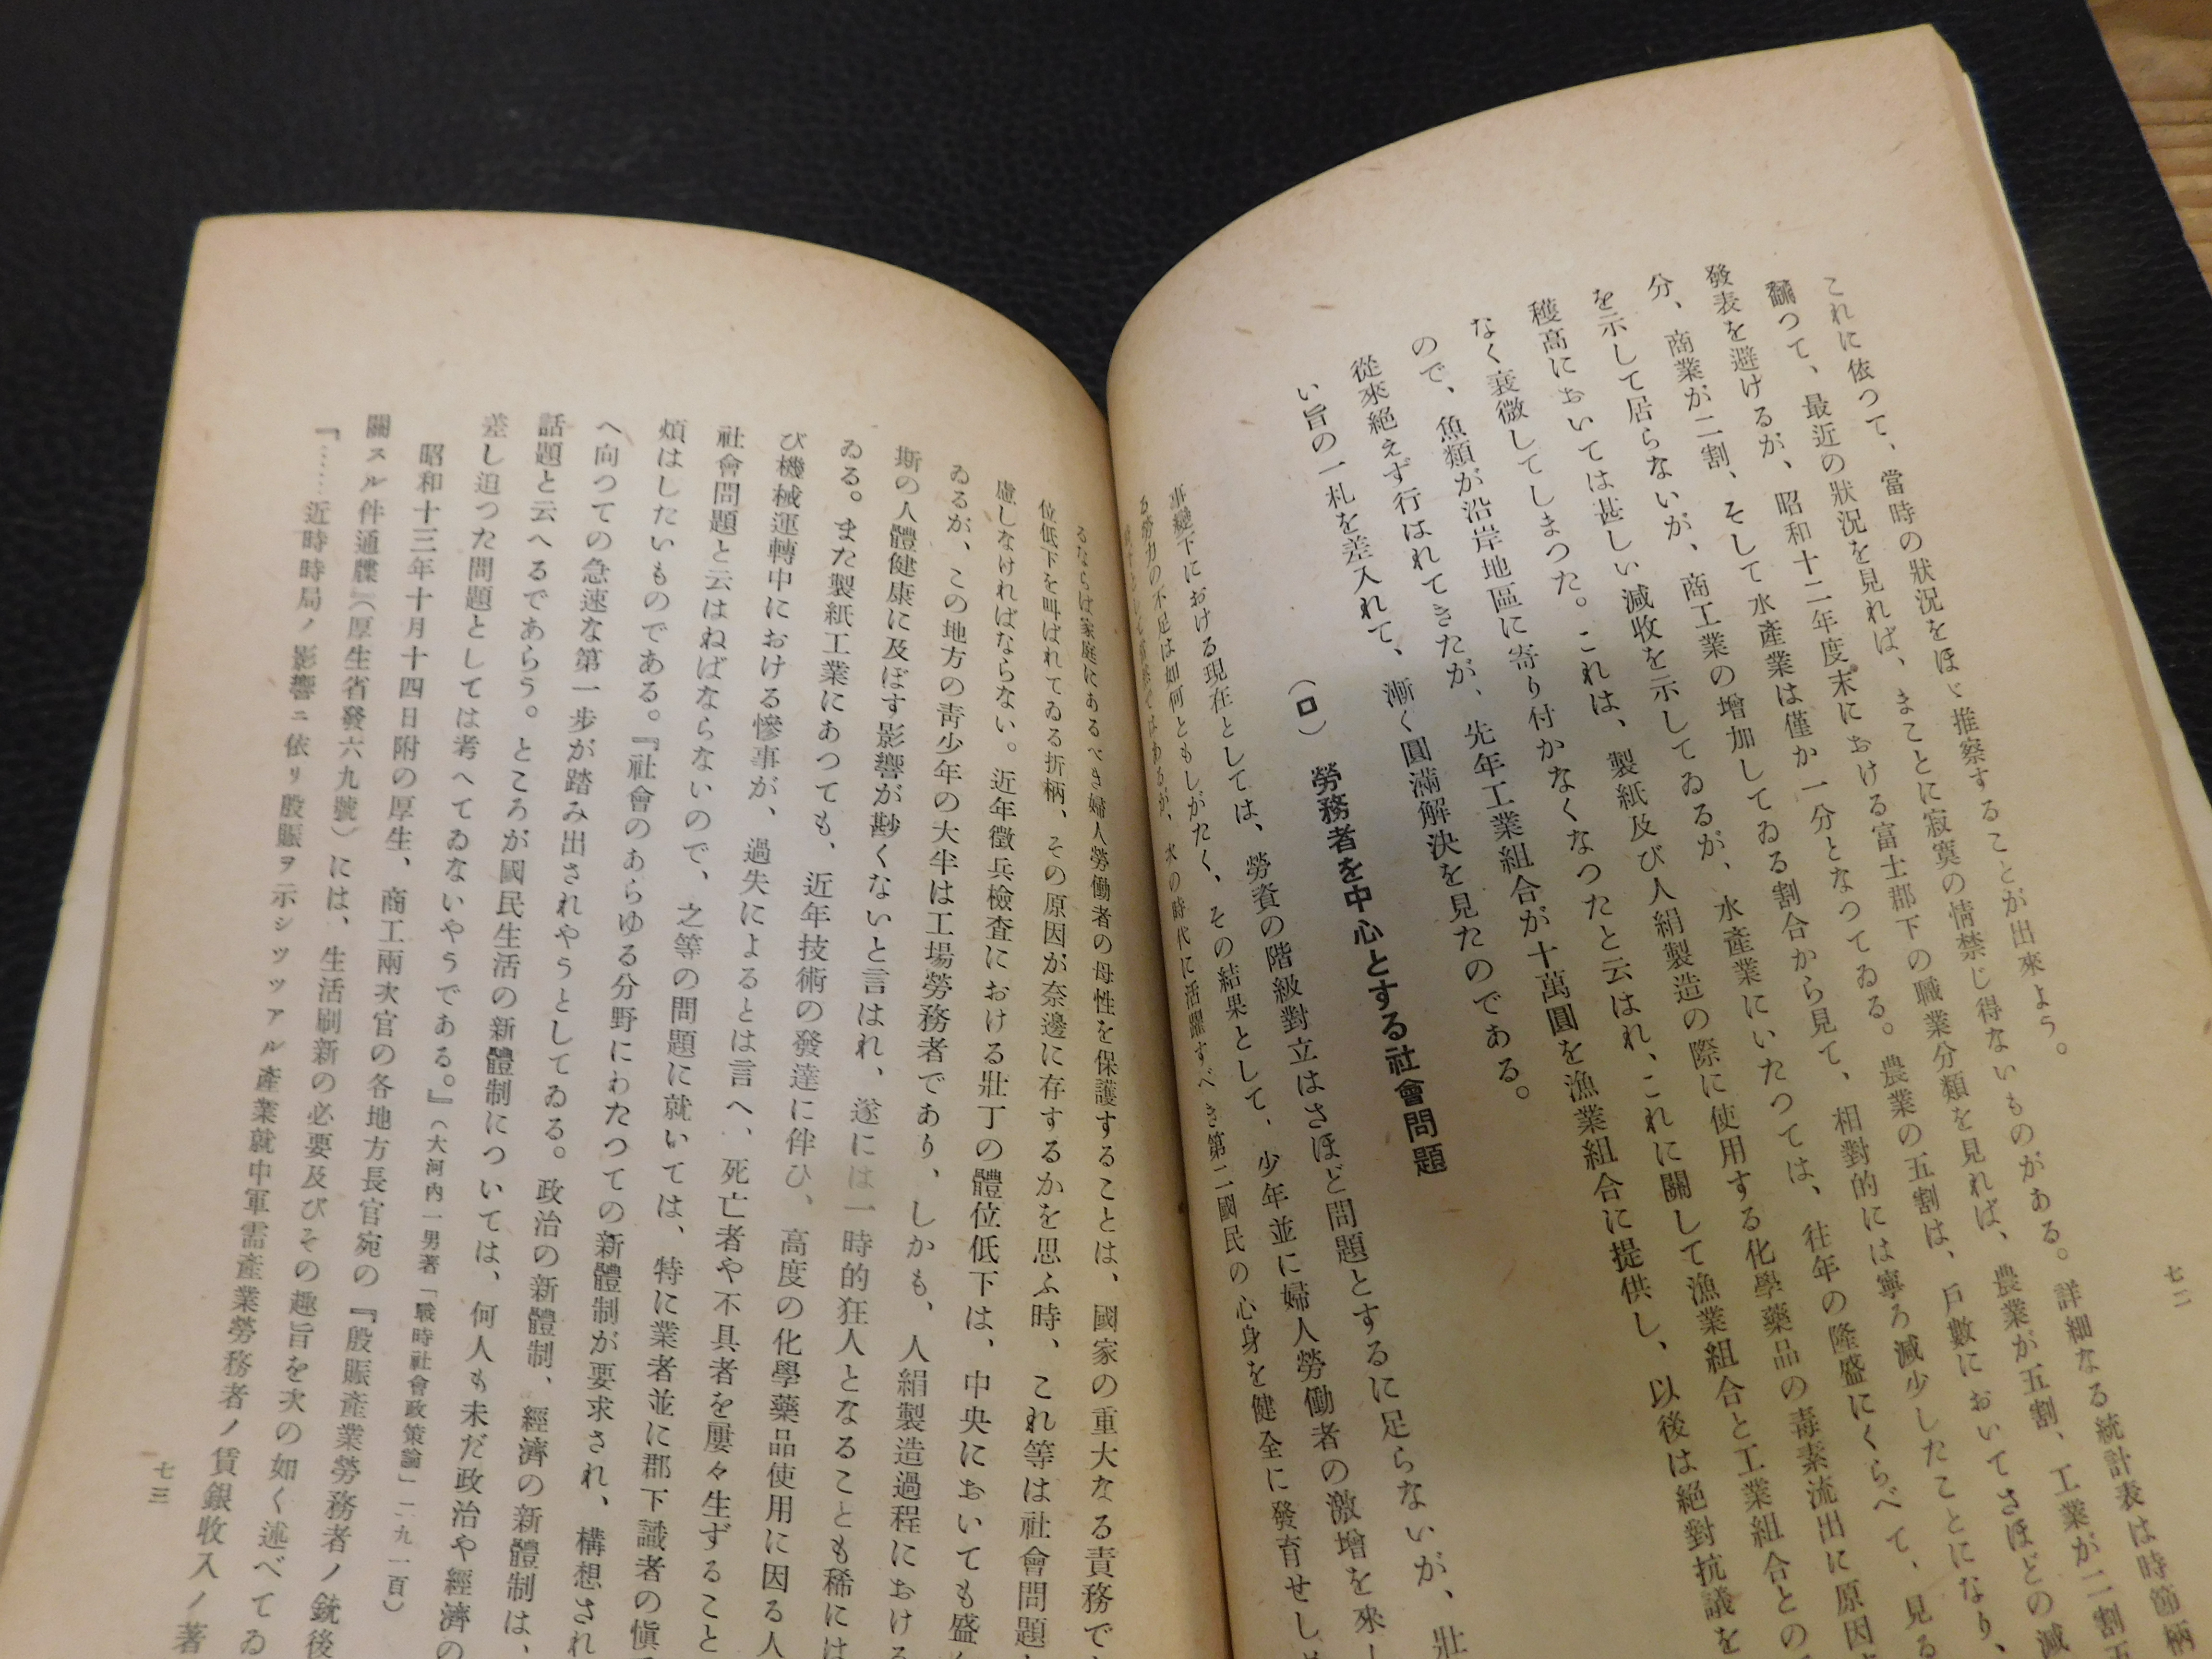 これに依つて、當時の狀況をほゞ推察することが出來よう。
飜つて、最近の狀況を見れば、まことに寂寞の情禁じ得ないものがある。詳細なる統計表は時節柄
發表を避けるが、昭和十二年度末における富士郡下の職業分類を見れば、農業が五割、工業が二割五
分、商業が二割、そして水產業は僅か一分となつてゐる。農業の五割は、戶數においてさほどの減
を示して居らないが、商工業の增加してゐる割合から見て、相對的には寧ろ減少したことになり、
穫高においては甚しい減收を示してゐるが、水產業にいたつては、往年の隆盛にくらべて、見る
なく衰微してしまつた。これは、製紙及び人絹製造の際に使用する化學藥品の毒素流出に原因
ので、魚類が沿岸地區に寄り付かなくなつたと云はれ、これに關して漁業組合と工業組合との
從來絕えず行はれてきたが、先年工業組合が十萬圓を漁業組合に提供し、以後は絕對抗議を
い旨の一札を差入れて、漸く圓滿解決を見たのである。
(ロ) 勞務者を中心とする社會問題
事變下における現在としては、勞資の階級對立はさほど問題とするに足らないが、壯
る勞力の不足は如何ともしがたく、その結果として、少年並に婦人勞働者の激增を來し
次の時代に活躍すべき第二國民の心身を健全に發育せし
七二
るならば家庭にあるべき婦人勞働者の母性を保護することは、國家の重大なる責務で
位低下を叫ばれてゐる折柄、その原因が奈邊に存するかを思ふ時、これ等は社會問題
慮しなければならない。近年徵兵檢査における壯丁の體位低下は、中央においても盛
ゐるが、この地方の靑少年の大半は工場勞務者であり、しかも、人絹製造過程における
斯の人體健康に及ぼす影響が尠くないと言はれ、遂には一時的狂人となることも稀には
ゐる。また製紙工業にあつても、近年技術の發達に伴ひ、高度の化學藥品使用に因る人
び機械運轉中における慘事が、過失によるとは言へ、死亡者や不具者を屢々生ずること
社會問題と云はねばならないので、之等の問題に就いては、特に業者並に郡下識者の愼
煩はしたいものである。『社會のあらゆる分野にわたつての新體制が要求され、構想され
へ向つての急速な第一步が踏み出されやうとしてゐる。政治の新體制、經濟の新體制は、
話題と云へるであらう。ところが國民生活の新體制については、何人も未だ政治や經濟の
差し迫つた問題としては考へてゐないやうである。』(大河內一男著「戰時社會政策論」二九一頁)
昭和十三年十月十四日附の厚生、商工兩次官の各地方長官宛の『殷賑產業勞務者ノ銃後
關スル件通牒』(厚生省發六九號)には、生活刷新の必要及びその趣旨を次の如く述べてゐ
『……近時時局ノ影響ニ依リ殷賑ヲ示シツツアル產業就中軍需產業勞務者ノ賃銀收入ノ著
七三